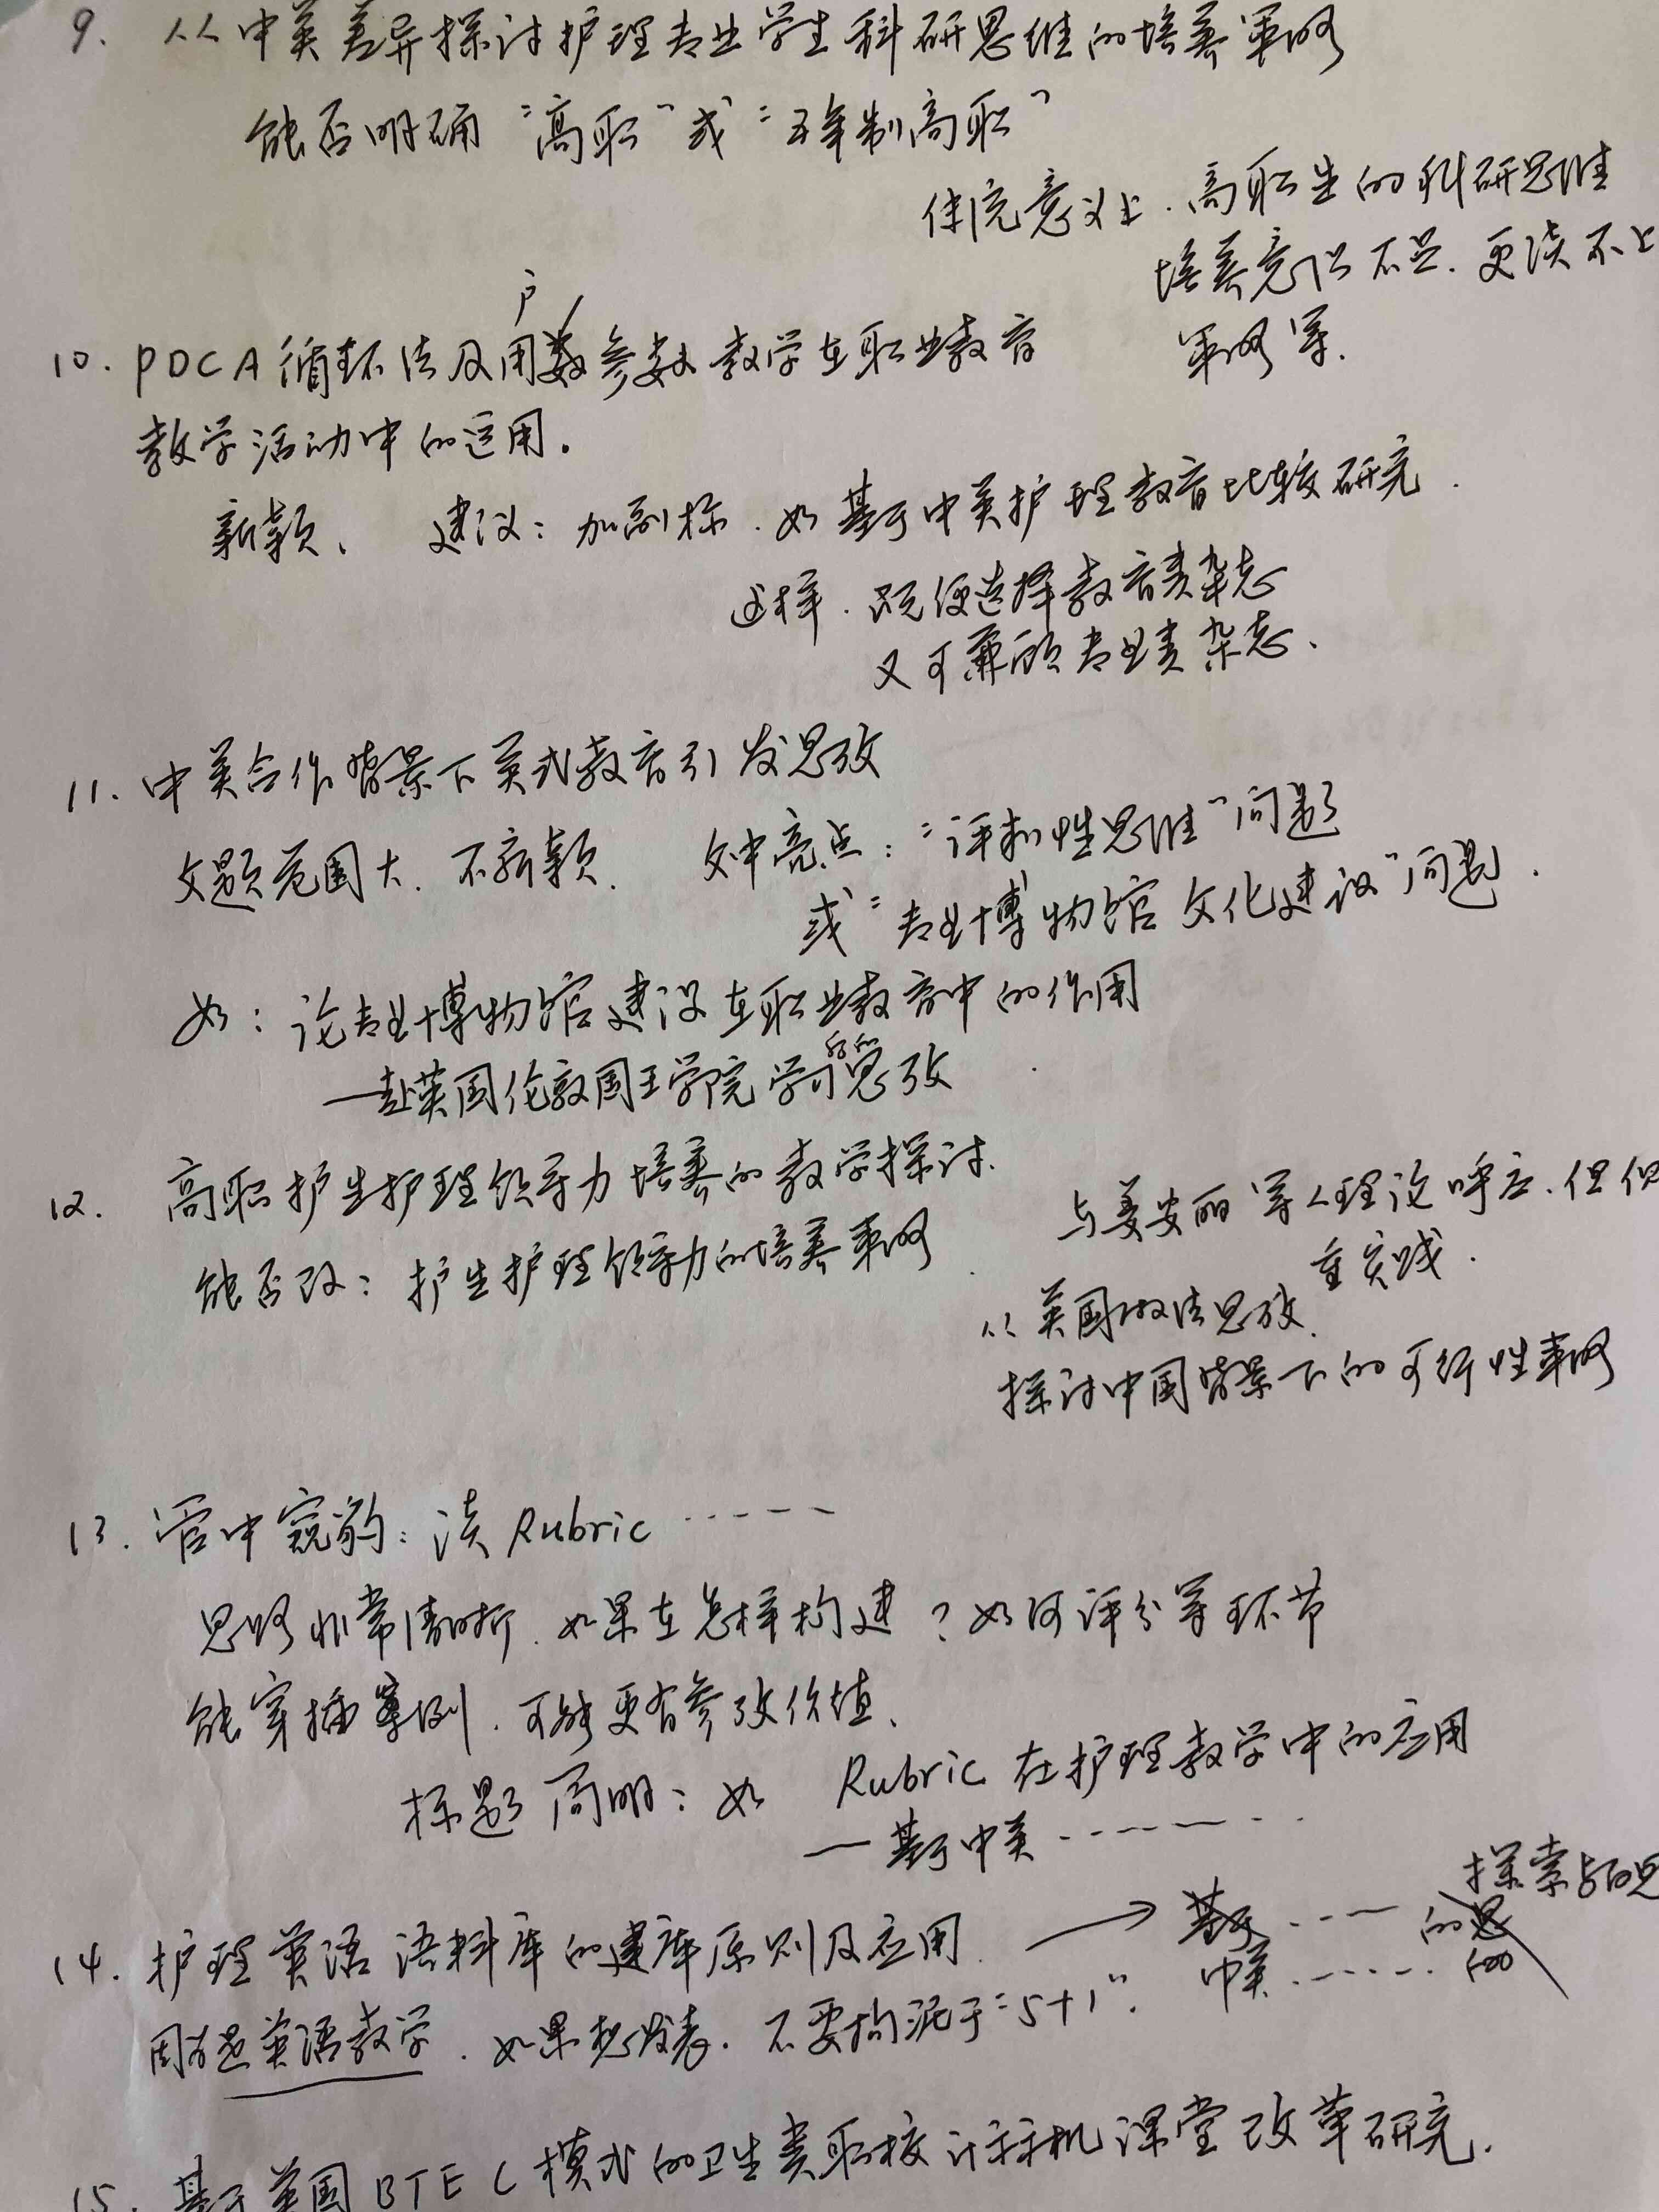 9. 从中英差异探讨护理专业学生科研思维的培养策略
能否明确“高职”或“五年制高职”
传统意义上.高职生的科研思维
培养意识不足.更谈不上
策略等.
户
10. PDCA循环法及用参数教学在职业教育
教学活动中的运用。
新颖、 建议:加副标.如基于中英护理教育比较研究.
这样.既便选择教育类杂志
又可兼顾专业类杂志、
11. 中英合作背景下英式教育引发思考
文题范围大.不新颖. 文中亮点:“评判性思维”问题
或“专业博物馆文化建设”问题.
如:论专业博物馆建设在职业教育中的作用
—赴英国伦敦国王学院学习后的思考
12. 高职护生护理领导力培养的教学探讨.
与姜安丽等人理论呼应.但但
重实践.
能否改:护生护理领导力的培养策略
从英国做法思考.
探讨中国背景下的可行性策略
13. 管中窥豹:谈Rubric……
思路非常清晰.如果在怎样构建?如何评分等环节
能穿插案例.可能更有参考价值、
标题简明:如 Rubric在护理教学中的应用
—基于中英………
14. 护理英语语料库的建库原则及应用. → 基于……的思
探索与
中英……
因为是英语教学.如果想发表.不要拘泥于“5+1”.
15. 基于英国BTEC模式的卫生类职校计算机课堂改革研究.